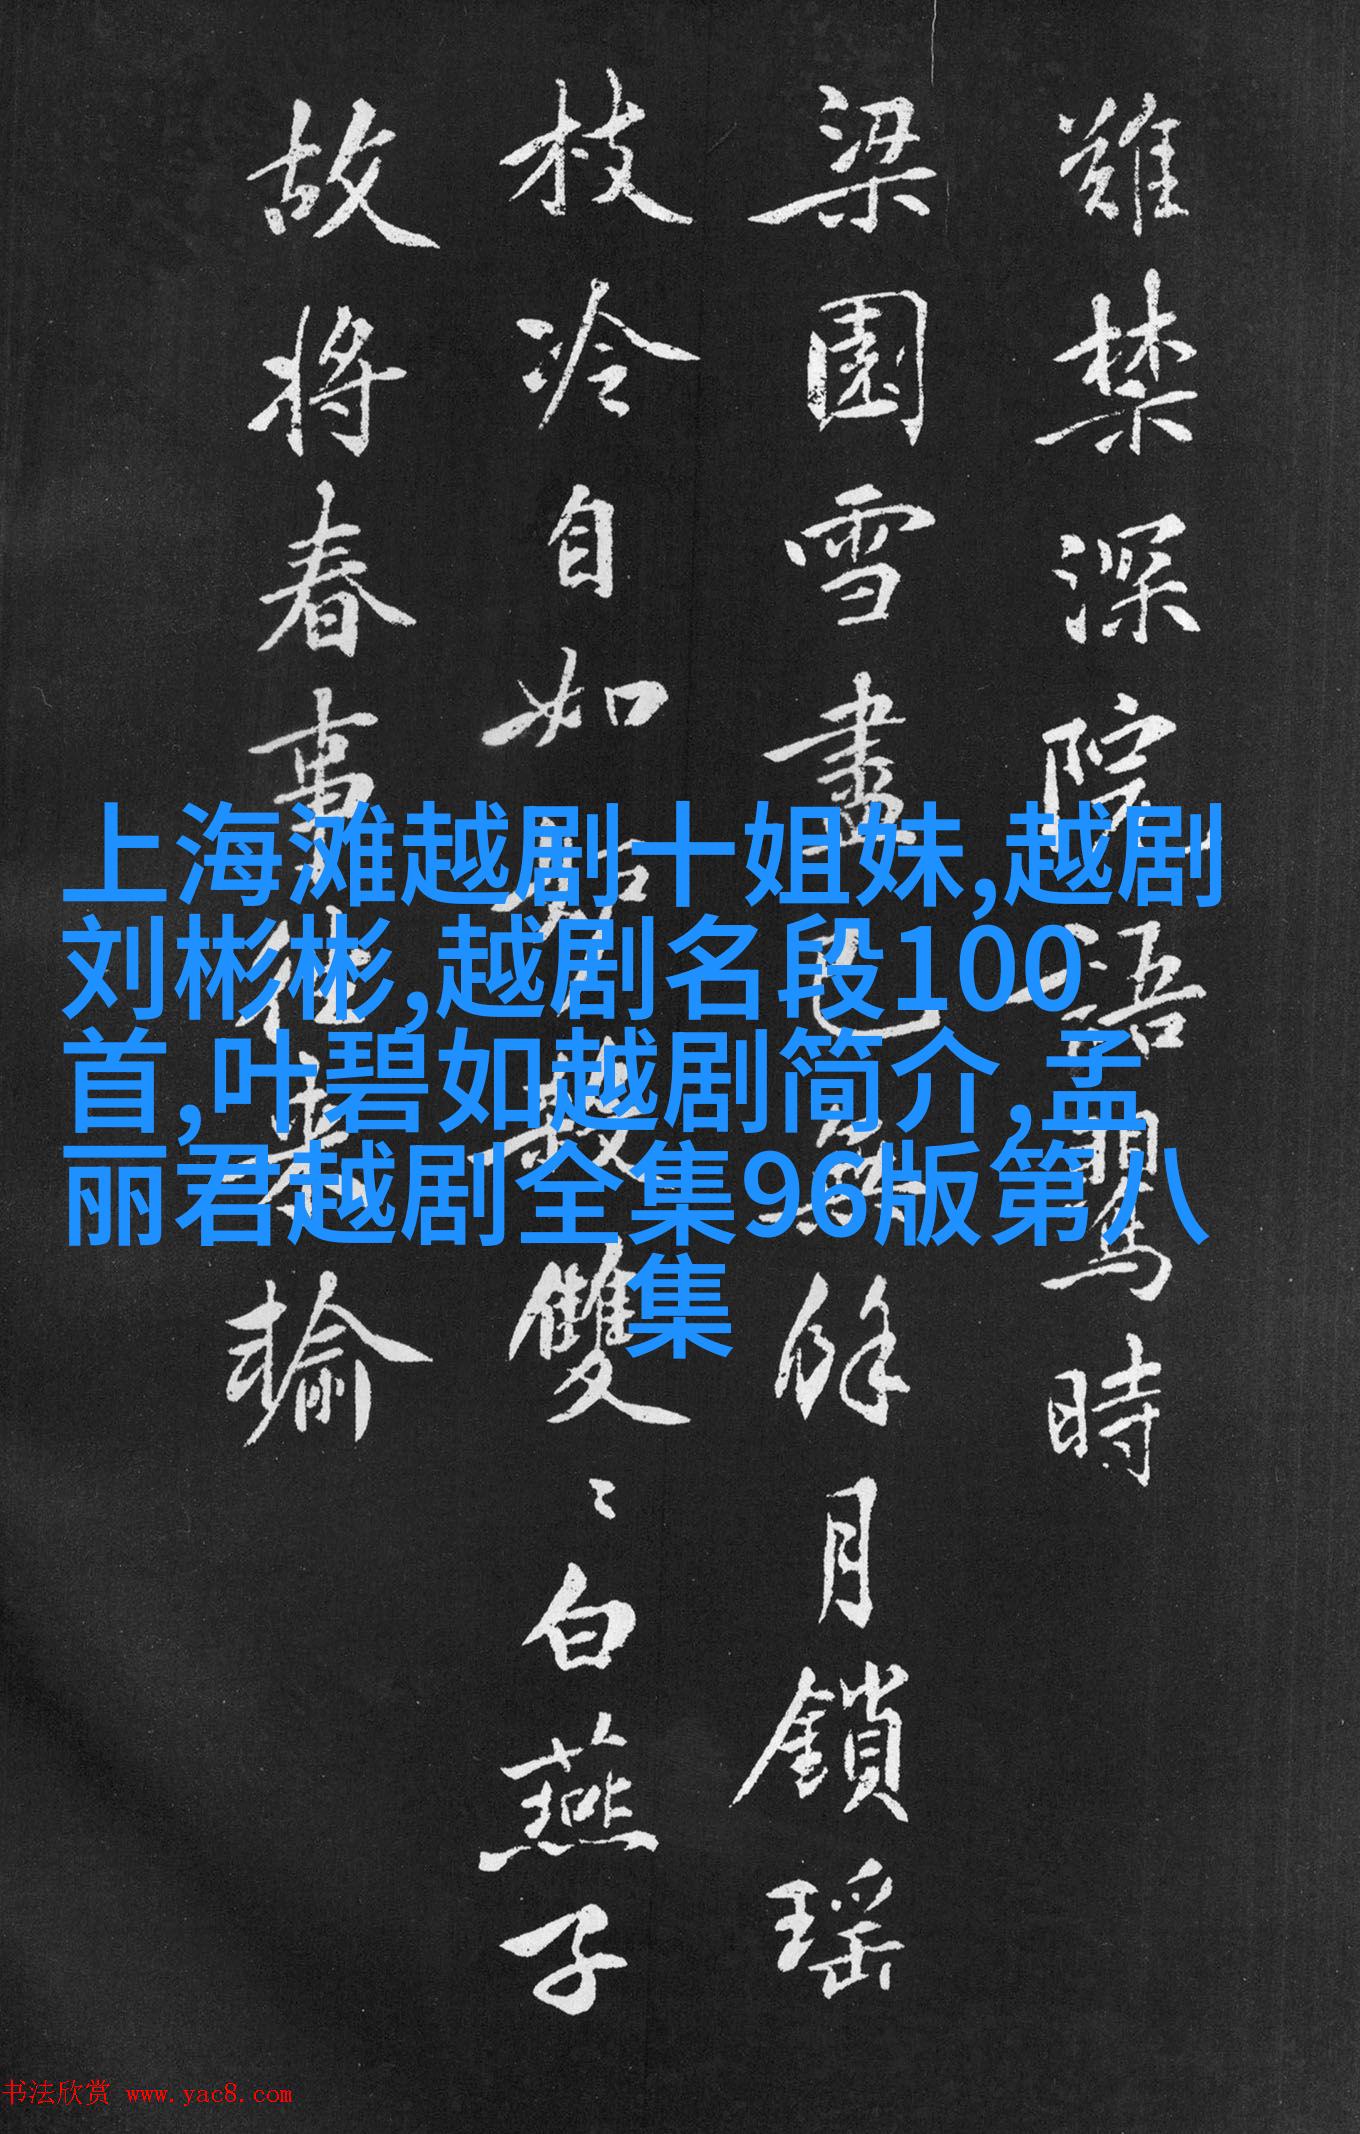 難禁深院語鶯時
梁園雪盡已無餘月鎖瑤
枝冷自如 數雙〻白燕子
故將春事往來輸
上海滩越剧十姐妹,越剧
刘彬彬,越剧名段100
首,叶碧如越剧简介,孟
丽君越剧全集96版第八
集
书法欣赏 www.yac8.com